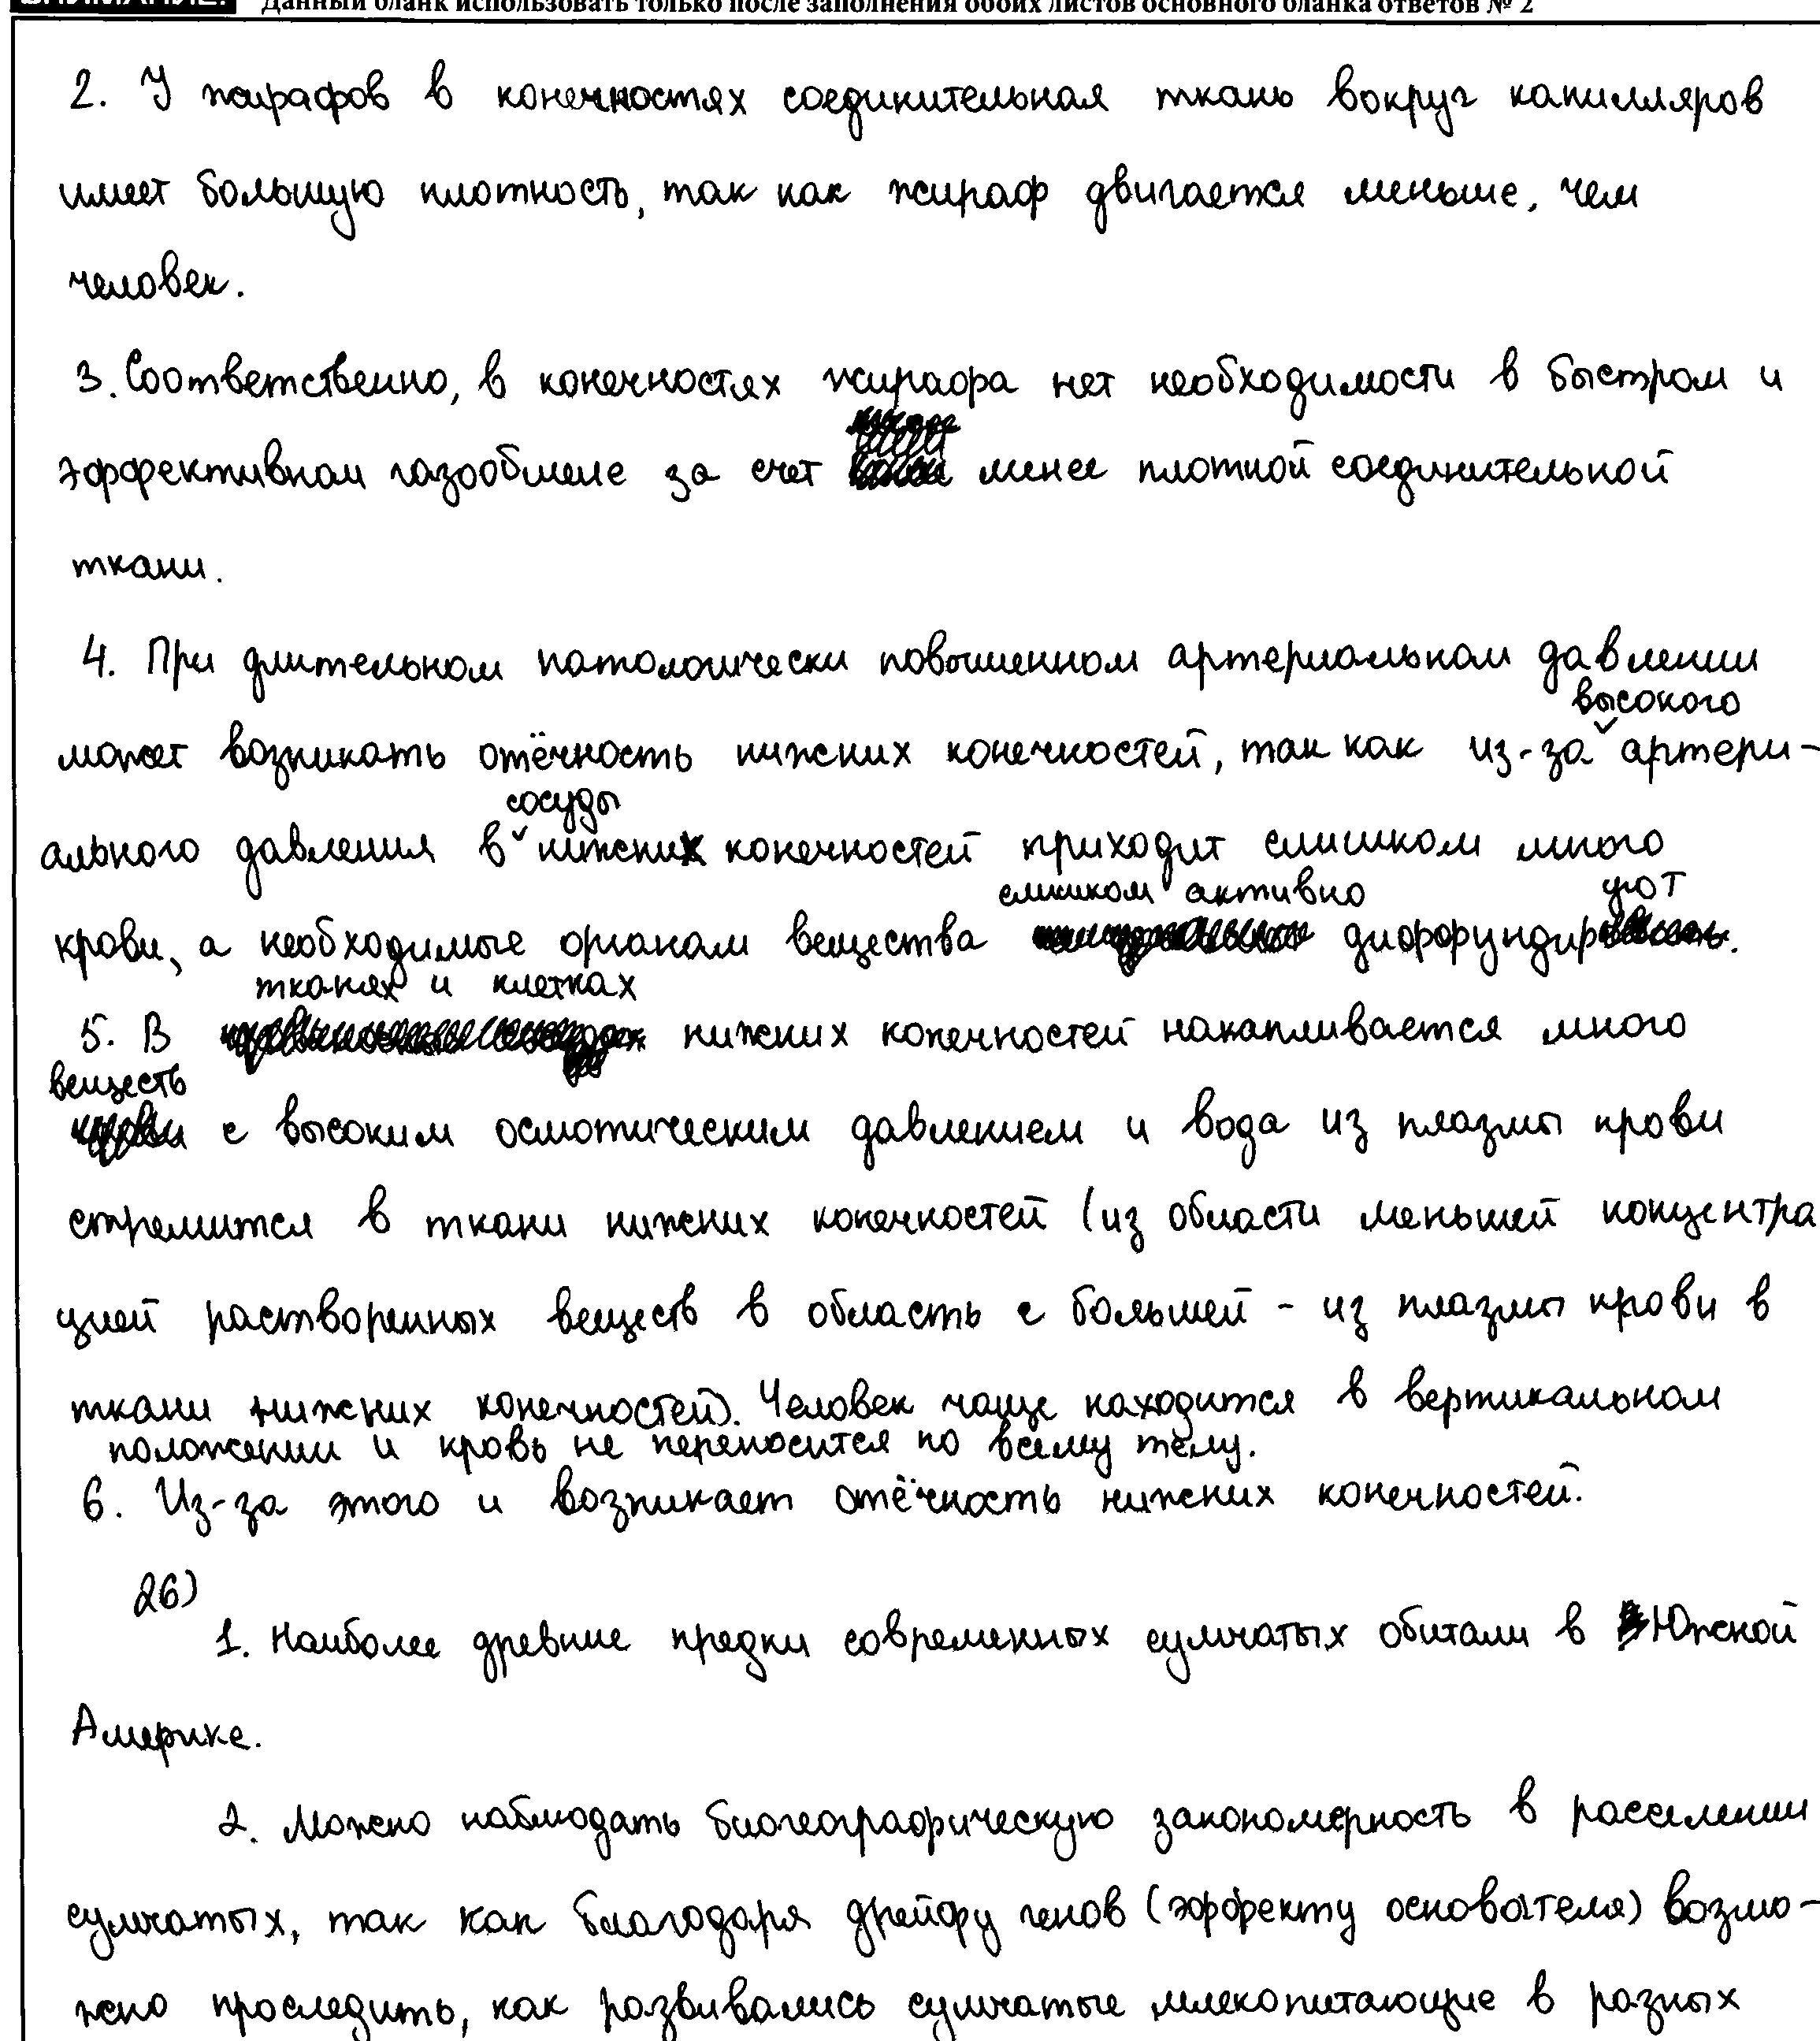 ВНИМАНИЕ! Данный бланк использовать только после заполнения обоих листов основного бланка ответов № 2
2. У жирафов в конечностях соединительная ткань вокруг капилляров
имеет большую плотность, так как жираф двигается меньше, чем
человек.
3. Соответственно, в конечностях жирафа нет необходимости в быстром и
эффективном газообмене за счет менее плотной соединительной
ткани.
4. При длительном патологически повышенном артериальном давлении
высокого
может возникать отёчность нижних конечностей, так как из-за артери-
сосуды
ального давления в нижних конечностей приходит слишком много
слишком активно уют
крови, а необходимые органам вещества диффундир.
тканях и клетках
5. В нижних конечностей накапливается много
веществ
с высоким осмотическим давлением и вода из плазмы крови
стремится в ткани нижних конечностей (из области меньшей концентра
цией растворенных веществ в область с большей - из плазмы крови в
ткани нижних конечностей). Человек чаще находится в вертикальном
положении и кровь не переносится по всему телу.
6. Из-за этого и возникает отёчность нижних конечностей.
26)
1. Наиболее древние предки современных сумчатых обитали в Южной
Америке.
2. Можно наблюдать биогеографическую закономерность в расселении
сумчатых, так как благодаря дрейфу генов (эффекту основателя) возмо-
жно проследить, как развивались сумчатые млекопитающие в разных